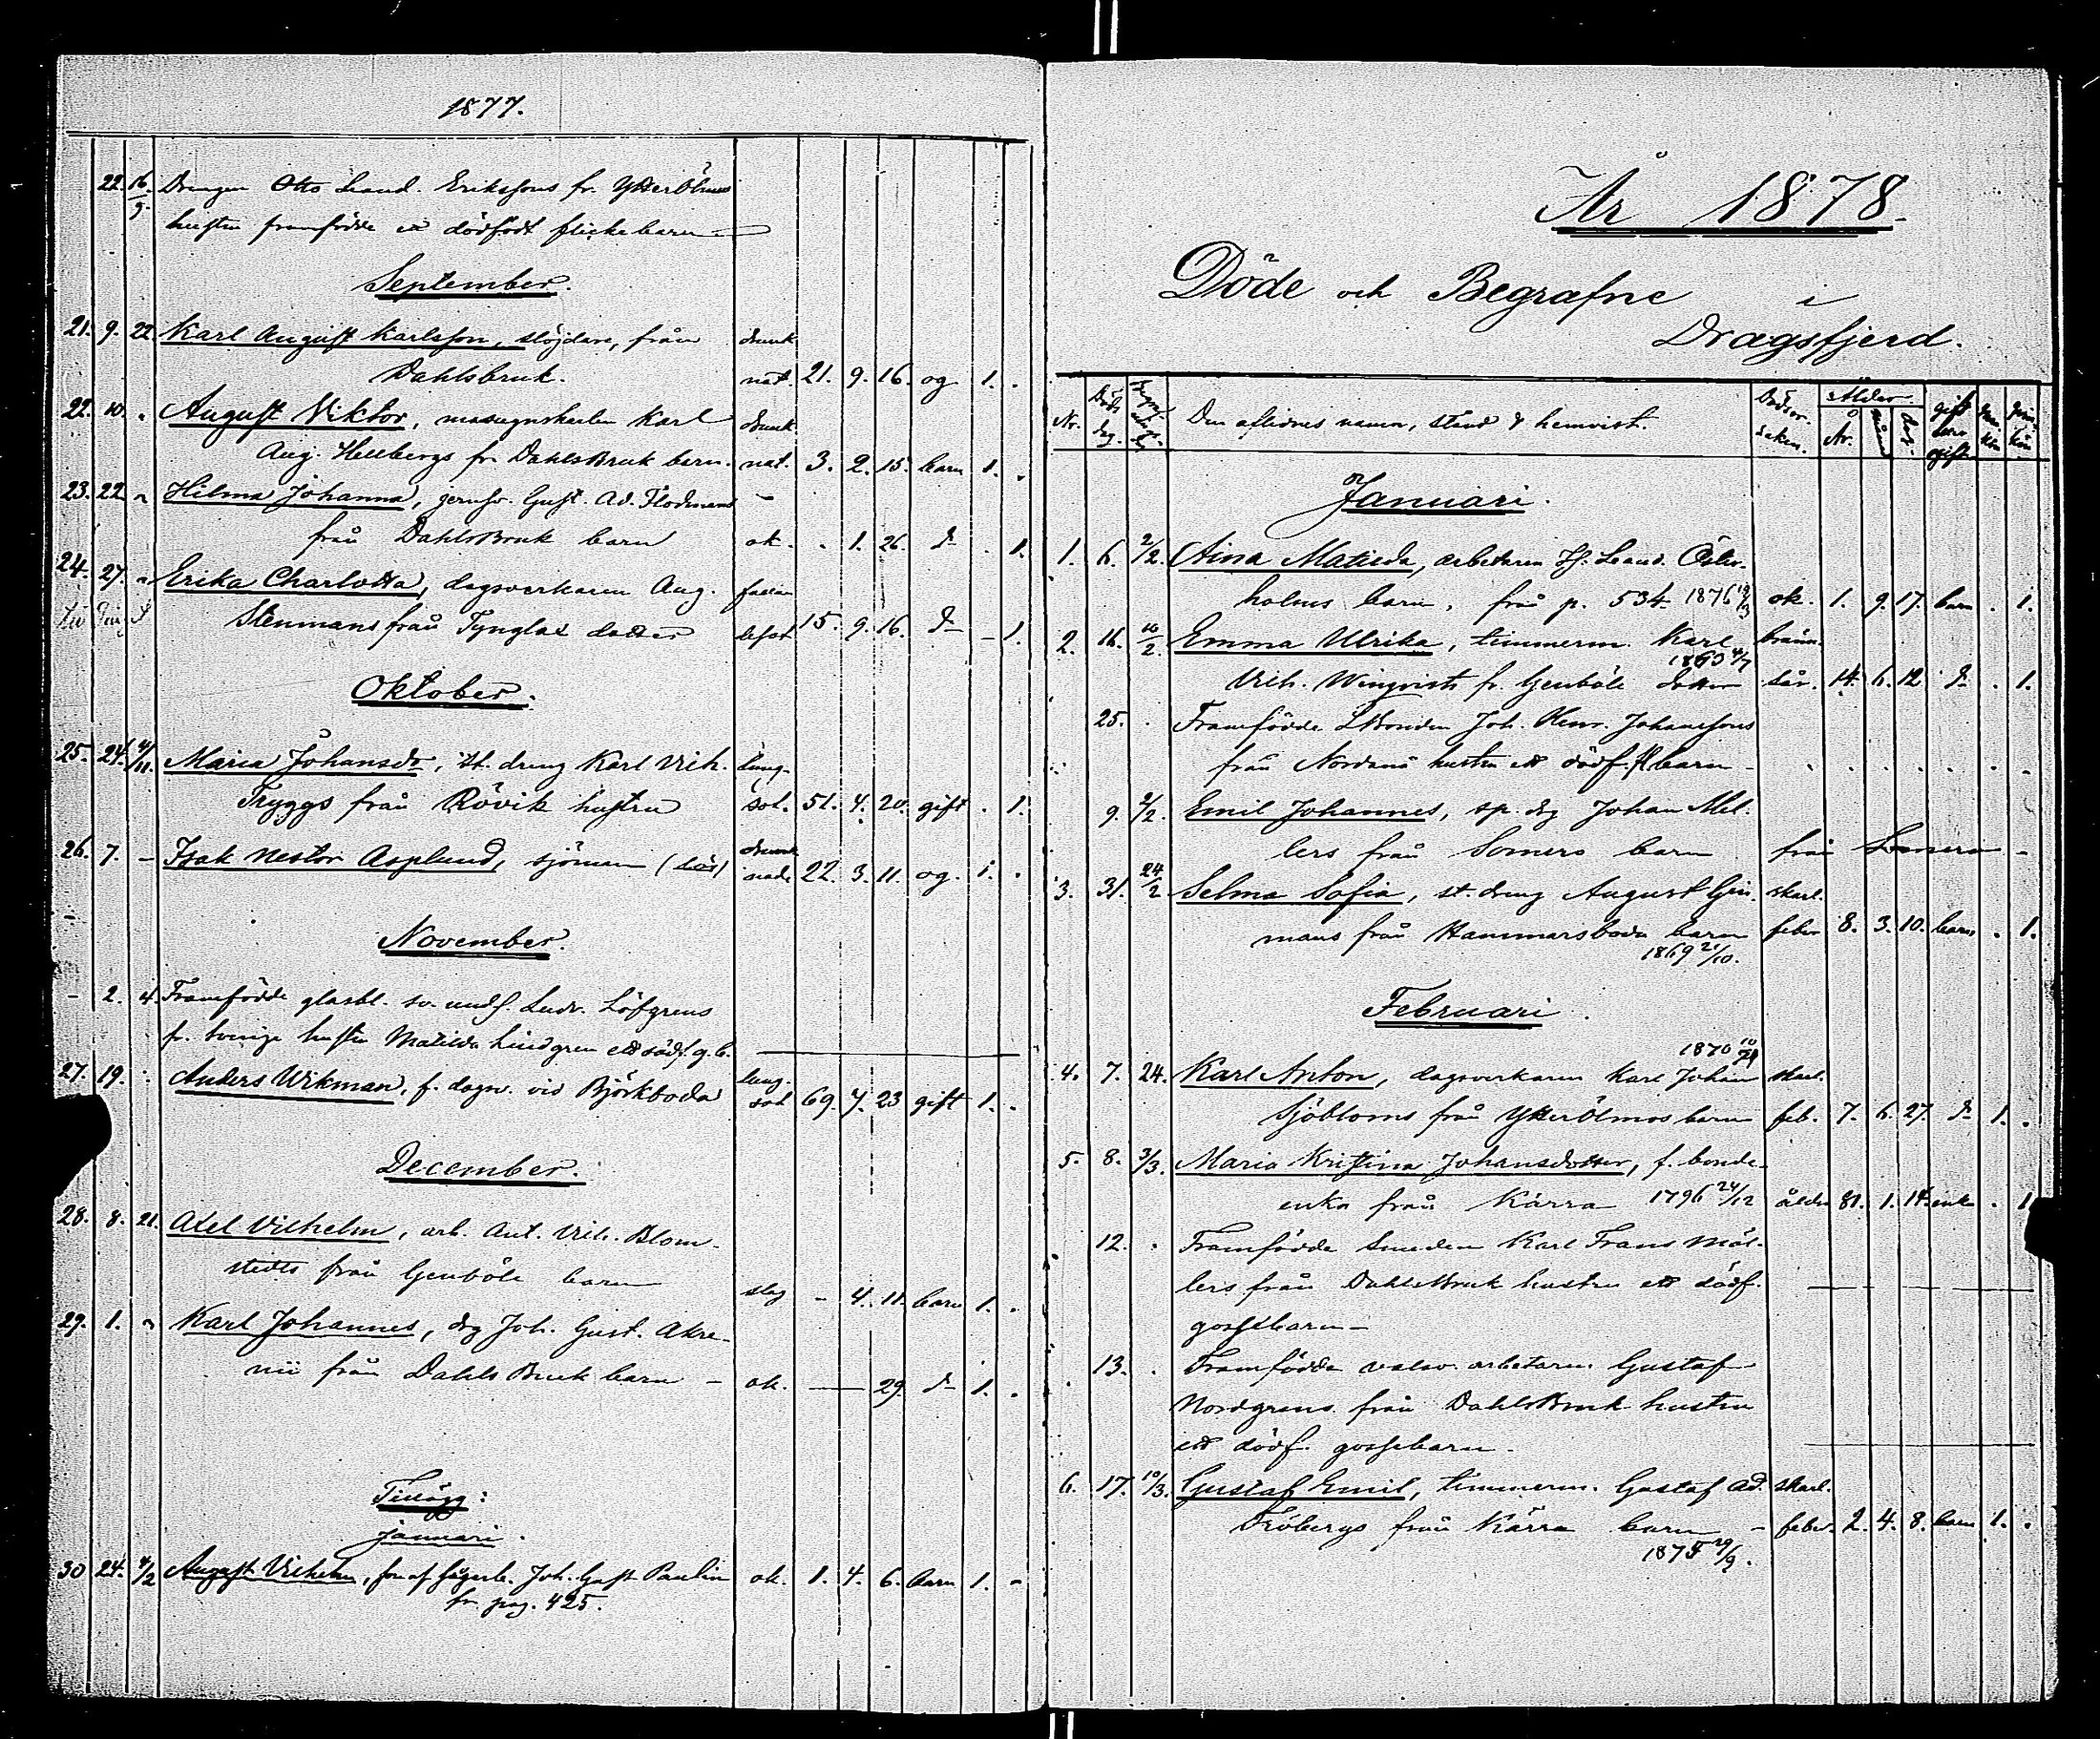 1877.
22. 16/9. Drengen Otto Leand. Erikssons fr. YtterÖlmos
hustru framfödde ett dödfödt flickebarn
September.
21. 9. 22. Karl August Karlsson, slöjdare, från drunk
Dahlsbruk. nat. 21. 9. 16. og 1. .
22. 10. " August Viktor, masugnskarlen Karl drunk
Aug. Hellbergs fr. DahlsBruk barn. nat. 3. 2. 15. barn 1. .
23. 22 " Hilma Johanna, jernsv. Gust. Ad. Flodmans -
från DahlsBruk barn ok. . 1. 26. d- . 1.
24. 27. " Erika Charlotta, dagsverkaren Aug.
Stenmans från Tynglax dotter 15. 9. 16. d- - 1.
Oktober.
25. 24. 4/11. Maria Johansdr, st. dreng Karl Vilh. lung-
Tryggs från Rövik hustru sot. 51. 4. 20. gift . 1.
26. 7. - Isak Nestor Asplund, sjöman (lös) drunk
nade 22. 3. 11. og. 1. .
November.
- 2. 4. Framfödde glasbl. sv. unds. Ludv. Löfgrens
fr. Sverige hustru Matilda Lindgren ett dödf. g.b.
27. 19. . Anders Wikman, f. dagsv. vid Björkboda lung-
sot 69. 7. 23 gift 1. .
December.
28. 8. 21. Axel Vilhelm, arb. Ant. Vilh. Blom-
stedts från Genböle barn slag - 4. 11. barn 1. .
29. 1. " Karl Johannes, drg Joh. Gust. Akre-
nii från Dahls Bruk barn - ok. — 29. d- 1. .
Tillägg:
Januari.
30 24. 4/2 August Vilhelm, son af Joh. Gust. Paulin ok. 1. 4. 6. barn 1. -
fr. pag. 425.
År 1878.
Döde och Begrafne i
Dragsfjerd.
Nr. Döds dag. Begraf- nings- d. Den aflidnes namn, stånd & hemvist. Dödsor- saken. Ålder År. mån. dag. gift eller ogift man kön qvin kön
Januari.
1. 6. 2/2. Aina Matilda, arbetaren Leand. Öster-
holms barn, från p. 534. 1876 19/3 ok. 1. 9. 17. barn . 1.
2. 16. 10/2. Emma Ulrika, timmerm. Karl bränn-
1863 4/7
Vilh. Winqvists fr. Genböle dotter sår. 14. 6. 12 d- . 1.
25. . Framfödde Joh. Henr. Johanssons
från Nordanå hustru ett dödf. fl. barn - . . . . . . .
9. 2/2. Emil Johannes, sp. drg Johan Mel-
lers från Somero barn från Somero -
3. 31. 24/2 Selma Sofia, st. dreng August Grn- skarl.
mans från Hammarsboda barn feber 8. 3. 10. barn . 1.
1869 21/10.
Februari.
1870 10/7
4. 7. 24. Karl Anton, dagsverkaren Karl Johan skarl.
Sjöbloms från YtterÖlmos barn feb. 7. 6. 27. d- 1. .
5. 8. 3/3. Maria Kristina Johansdotter, f. bonde-
enka från Kärra 1796 24/12 ålder 81. 1. 14. enka . 1.
12. . Framfödde Smeden Karl Frans Möl-
lers från DahlsBruk hustru ett dödf.
gossebarn -
13. . Framfödde valsv. arbetaren Gustaf
Nordgrens från DahlsBruk hustru
ett dödf. gossebarn -
6. 17. 10/3. Gustaf Emil, timmerm. Gustaf Ad. skarl.
Fröbergs från Kärra barn - feber. 2. 4. 8. barn 1. .
1875 29/9.